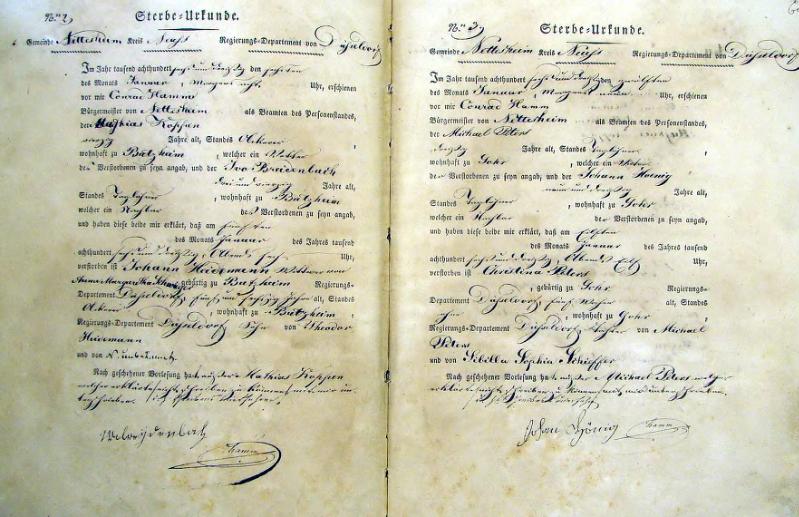 No 2
Sterbe=Urkunde.
Gemeinde Nettesheim Kreis Neuß Regierungs=Departement von Düsseldorf
Im Jahr tausend achthundert sechs und dreyßig den sechsten
des Monats Januar, Morgens acht Uhr, erschienen
vor mir Conrad Hamm
Bürgermeister von Nettesheim als Beamten des Personenstandes,
der Mathias Köppen
vierzig Jahre alt, Standes Ackerer
wohnhaft zu Butzheim, welcher ein
des Verstorbenen zu seyn angab, und der Ivo Breidenbach
drei und vierzig Jahre alt,
Standes Taglöhner, wohnhaft zu Butzheim
welcher ein Nachbar des Verstorbenen zu seyn angab,
und haben diese beide mir erklärt, daß am fünften
des Monats Januar des Jahres tausend
achthundert sechs und dreyßig, Abends sechs Uhr,
verstorben ist Johann Heidemann Wittwer von
Anna Margaretha gebürtig zu Butzheim Regierungs=
Departement Düsseldorf, fünf und sechzig Jahre alt, Standes
Ackerer, wohnhaft zu Butzheim
Regierungs=Departement Düsseldorf Sohn von Theodor
Heidemann
und von unbekannt
Nach geschehener Vorlesung hat Mathias Köppen
welcher erklärte nicht schreiben zu können
Hamm
No 3
Sterbe=Urkunde.
Gemeinde Nettesheim Kreis Neuß Regierungs=Departement von Düsseldorf
Im Jahr tausend achthundert sechs und dreyßig den zwölften
des Monats Januar, Morgens Uhr, erschienen
vor mir Conrad Hamm
Bürgermeister von Nettesheim als Beamten des Personenstandes,
der Michael Peters
dreyßig Jahre alt, Standes Taglöhner
wohnhaft zu Gohr, welcher ein Vater
der Verstorbenen zu seyn angab, und der Johann Hoenig
neun und dreyßig Jahre alt,
Standes Taglöhner, wohnhaft zu Gohr
welcher ein Nachbar der Verstorbenen zu seyn angab,
und haben diese beide mir erklärt, daß am eilften
des Monats Januar des Jahres tausend
achthundert sechs und dreyßig, Abends eilf Uhr,
verstorben ist Christina Peters
gebürtig zu Gohr Regierungs=
Departement Düsseldorf, fünf Wochen alt, Standes
wohnhaft zu Gohr
Regierungs=Departement Düsseldorf Tochter von Michael
Peters
und von Sibilla Sophia Schieffer
Nach geschehener Vorlesung hat Michael Peters
erklärte nicht schreiben zu können
Johan Hönig Hamm